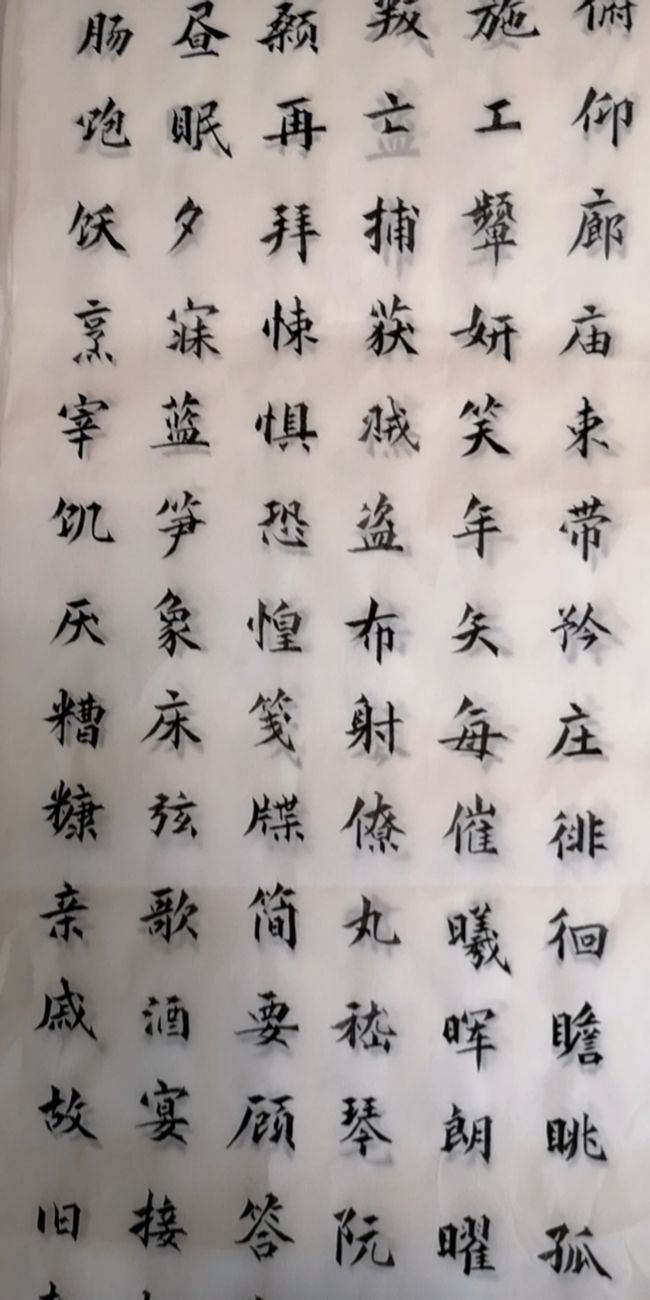 俯仰廊庙束带矜庄徘徊瞻眺孤
施工颦妍笑年矢每催曦晖朗曜
叛亡捕获贼盗布射僚丸嵇琴阮
颡再拜悚惧恐惶笺牒简要顾答
昼眠夕寐蓝笋象床弦歌酒宴接
肠饱饫烹宰饥厌糟糠亲戚故旧